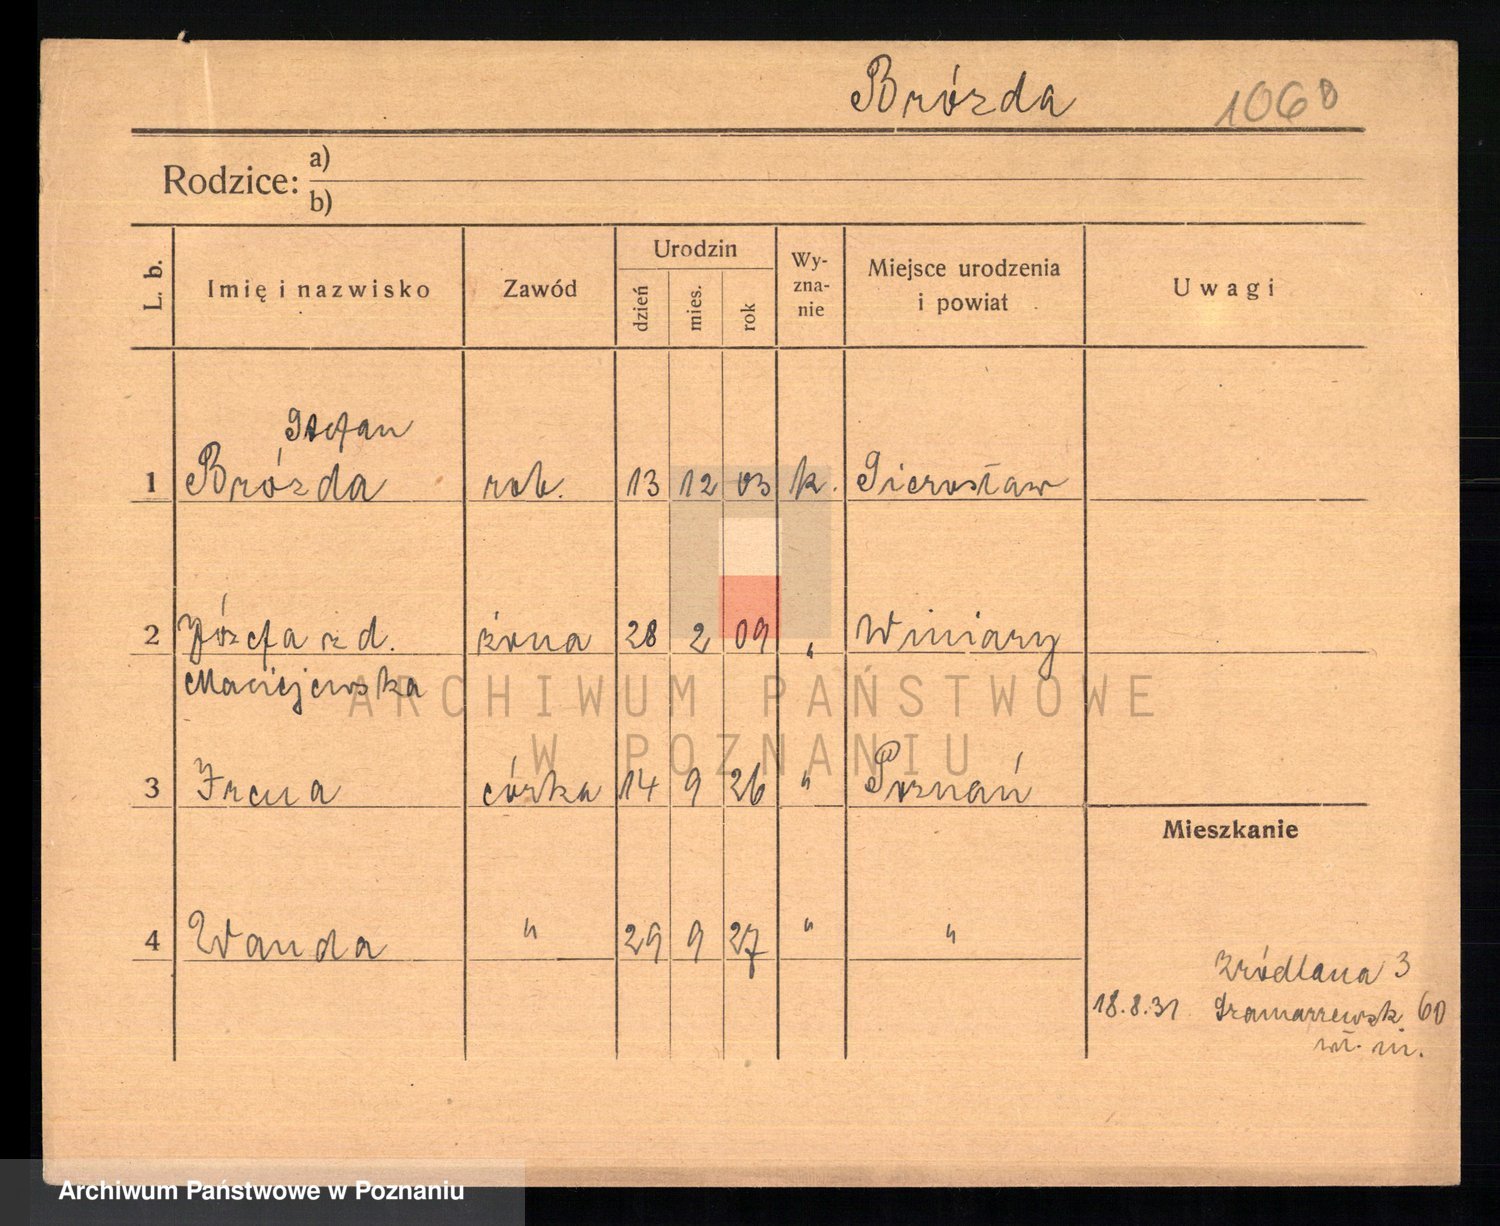 Brózda 1060
Rodzice: a)
b)
L. b. Imię i nazwisko Zawód Urodzin dzień mies. rok Wy-zna-nie Miejsce urodzenia i powiat Uwagi
Stefan
1 Brózda rob. 13 12 03 k. Sierosław
2 Józefa z d. żona 28 2 09 " Winiary
Maciejewska
ARCHIWUM PAŃSTWOWE
W POZNANIU
3 Irena córka 14 9 26 " Poznań
Mieszkanie
4 Wanda " 29 9 27 " "
Źródlana 3
18.8.31 60
wł. m.
Archiwum Państwowe w Poznaniu